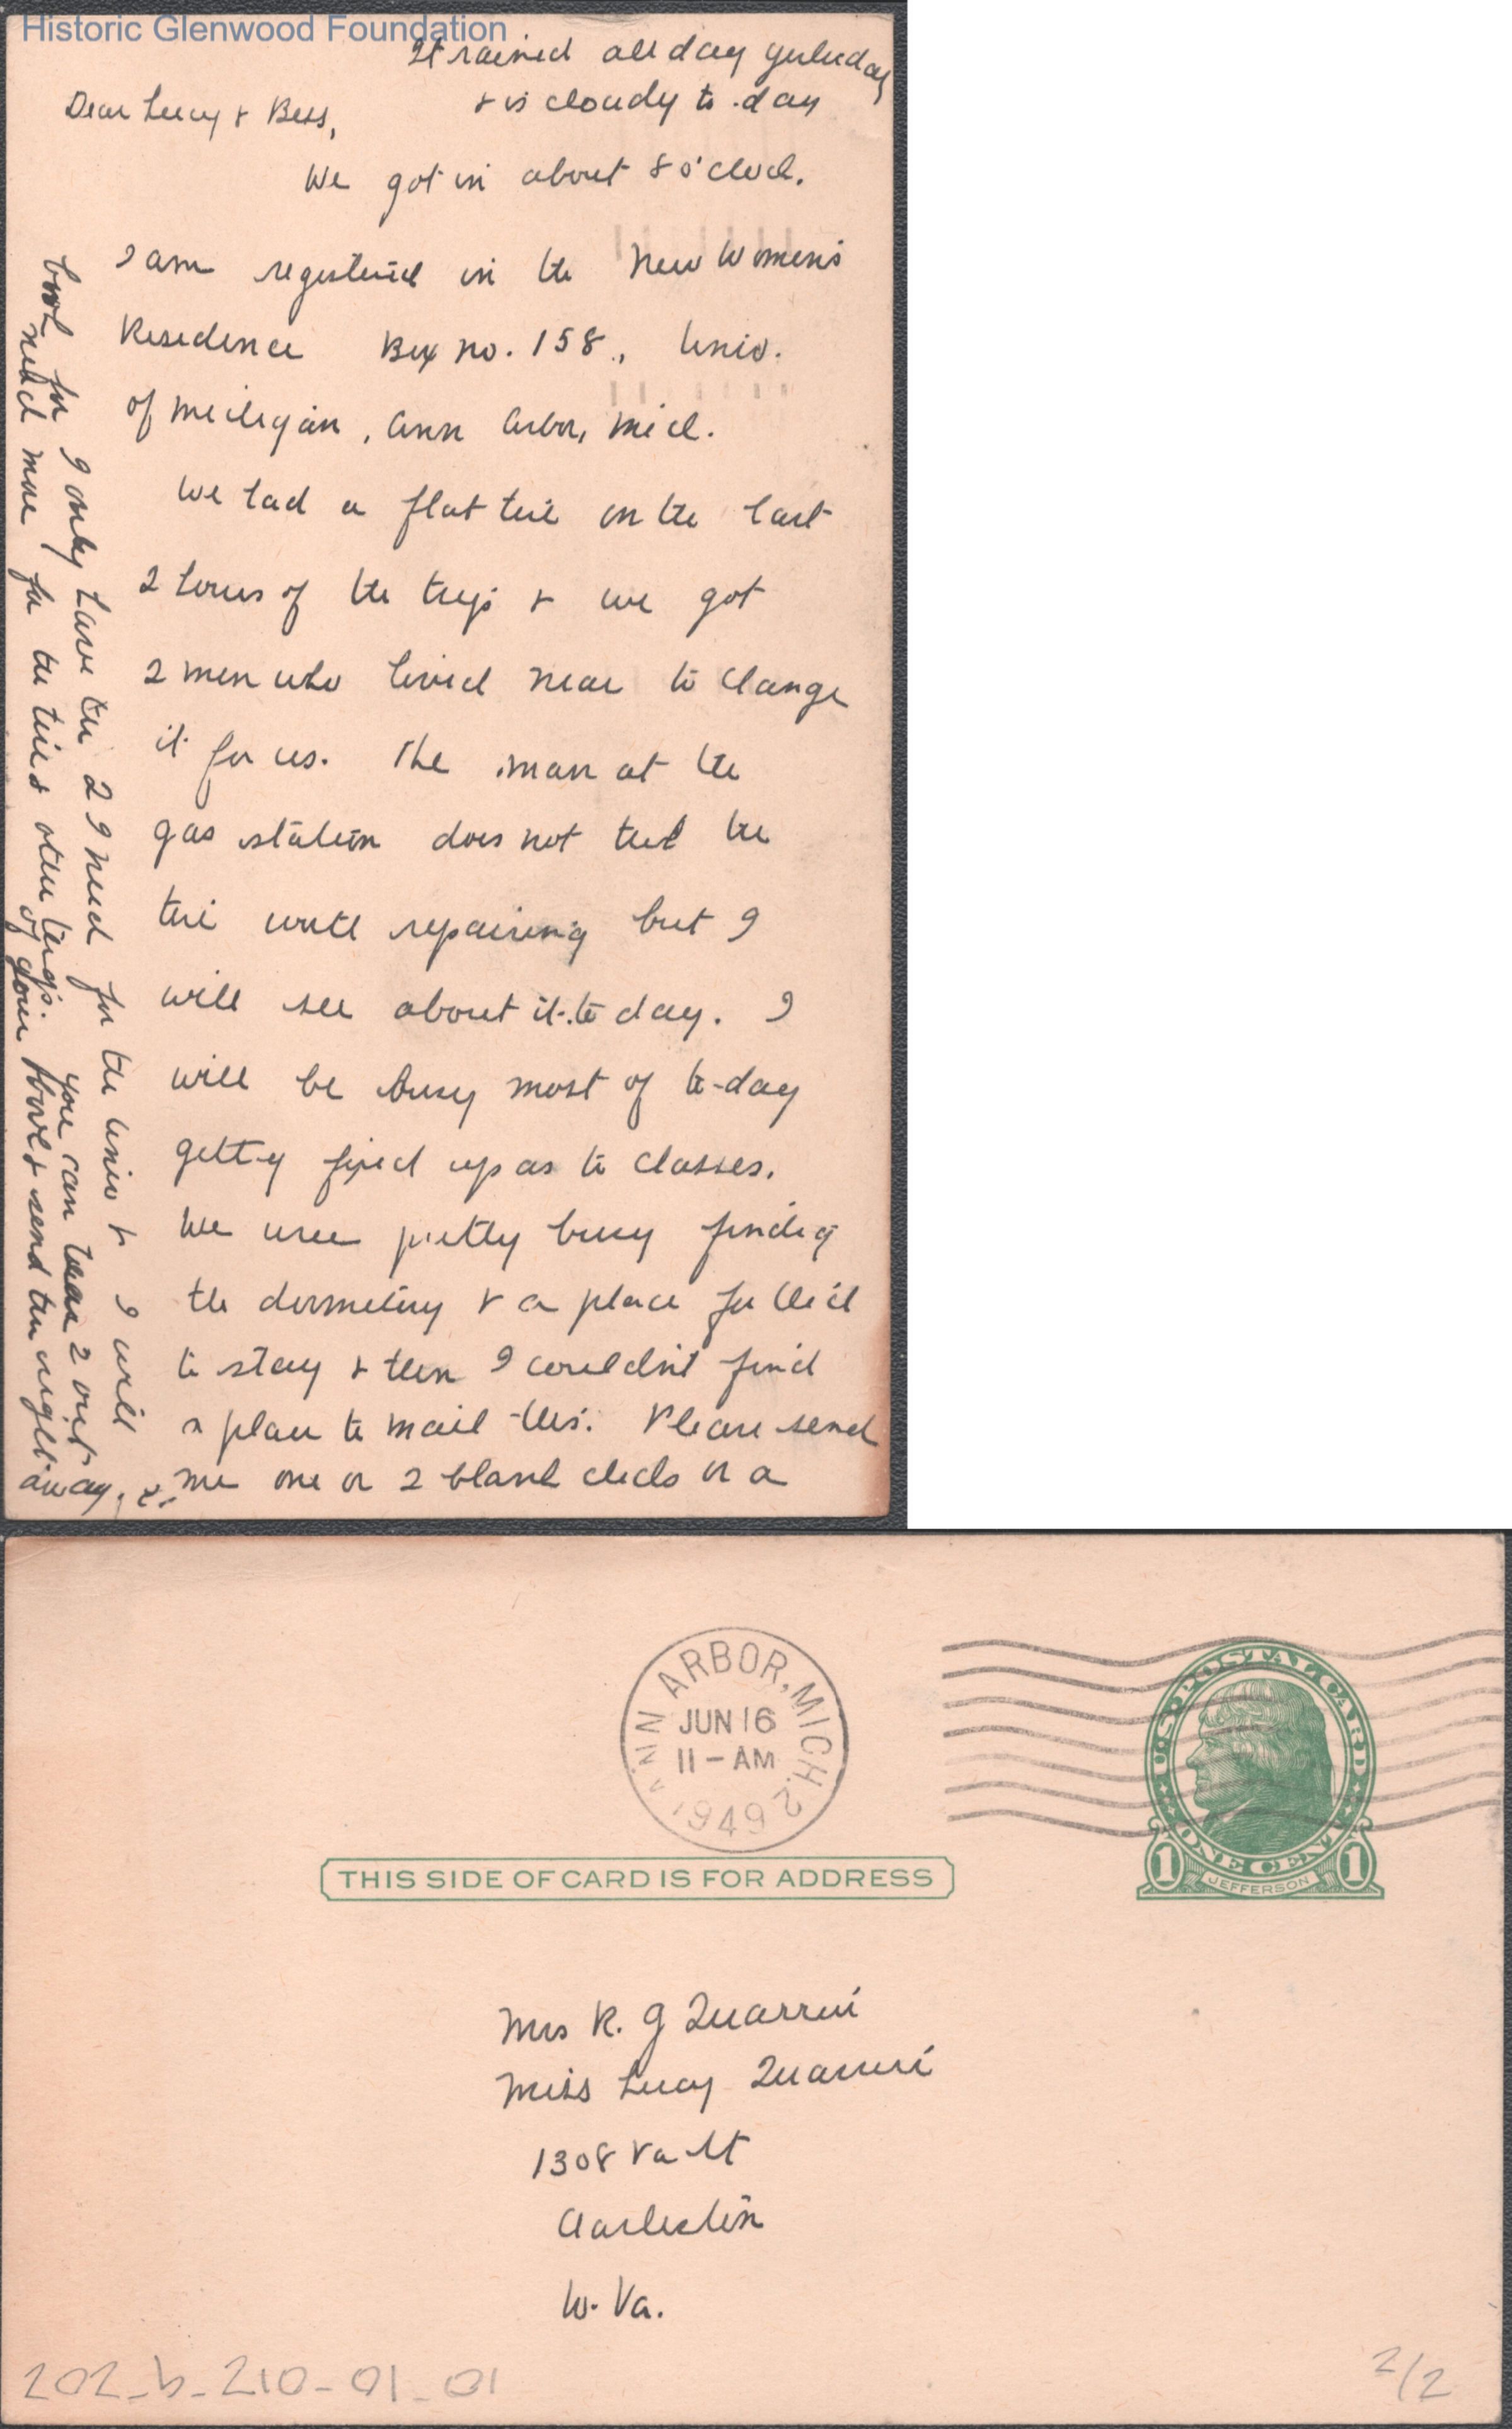 Historic Glenwood Foundation
It rained all day yesterday
& is cloudy to-day
Dear Lucy & Bess,
We got in about 8 o'clock.
I am registered in the New Women's
Residence Box no. 158, Univ.
of Michigan, Ann Arbor, Mich.
We had a flat tire on the last
2 hours of the trip & we got
2 men who lived near to change
it for us. The man at the
gas station does not think the
tire worth repairing but I
will see about it to day. I
will be busy most of to-day
getting fixed up as to classes.
We were pretty busy finding
the dormitory & a place for
to stay & then I couldn't find
a place to mail this. Please send
me one or 2 blank checks or a
book for I only have the 2 I need for the Univ & I will
need more for the tire & other things. You can tear 2 out
of your book & send them right
away.
ANN ARBOR, MICH. 2
JUN 16
11 - AM
1949
U.S. POSTAL CARD
ONE CENT
1 JEFFERSON 1
THIS SIDE OF CARD IS FOR ADDRESS
Mrs R. G Quarrier
Miss Lucy Quarrier
1308 Va St
Charleston
W. Va.
202_b_210-01_01
2/2